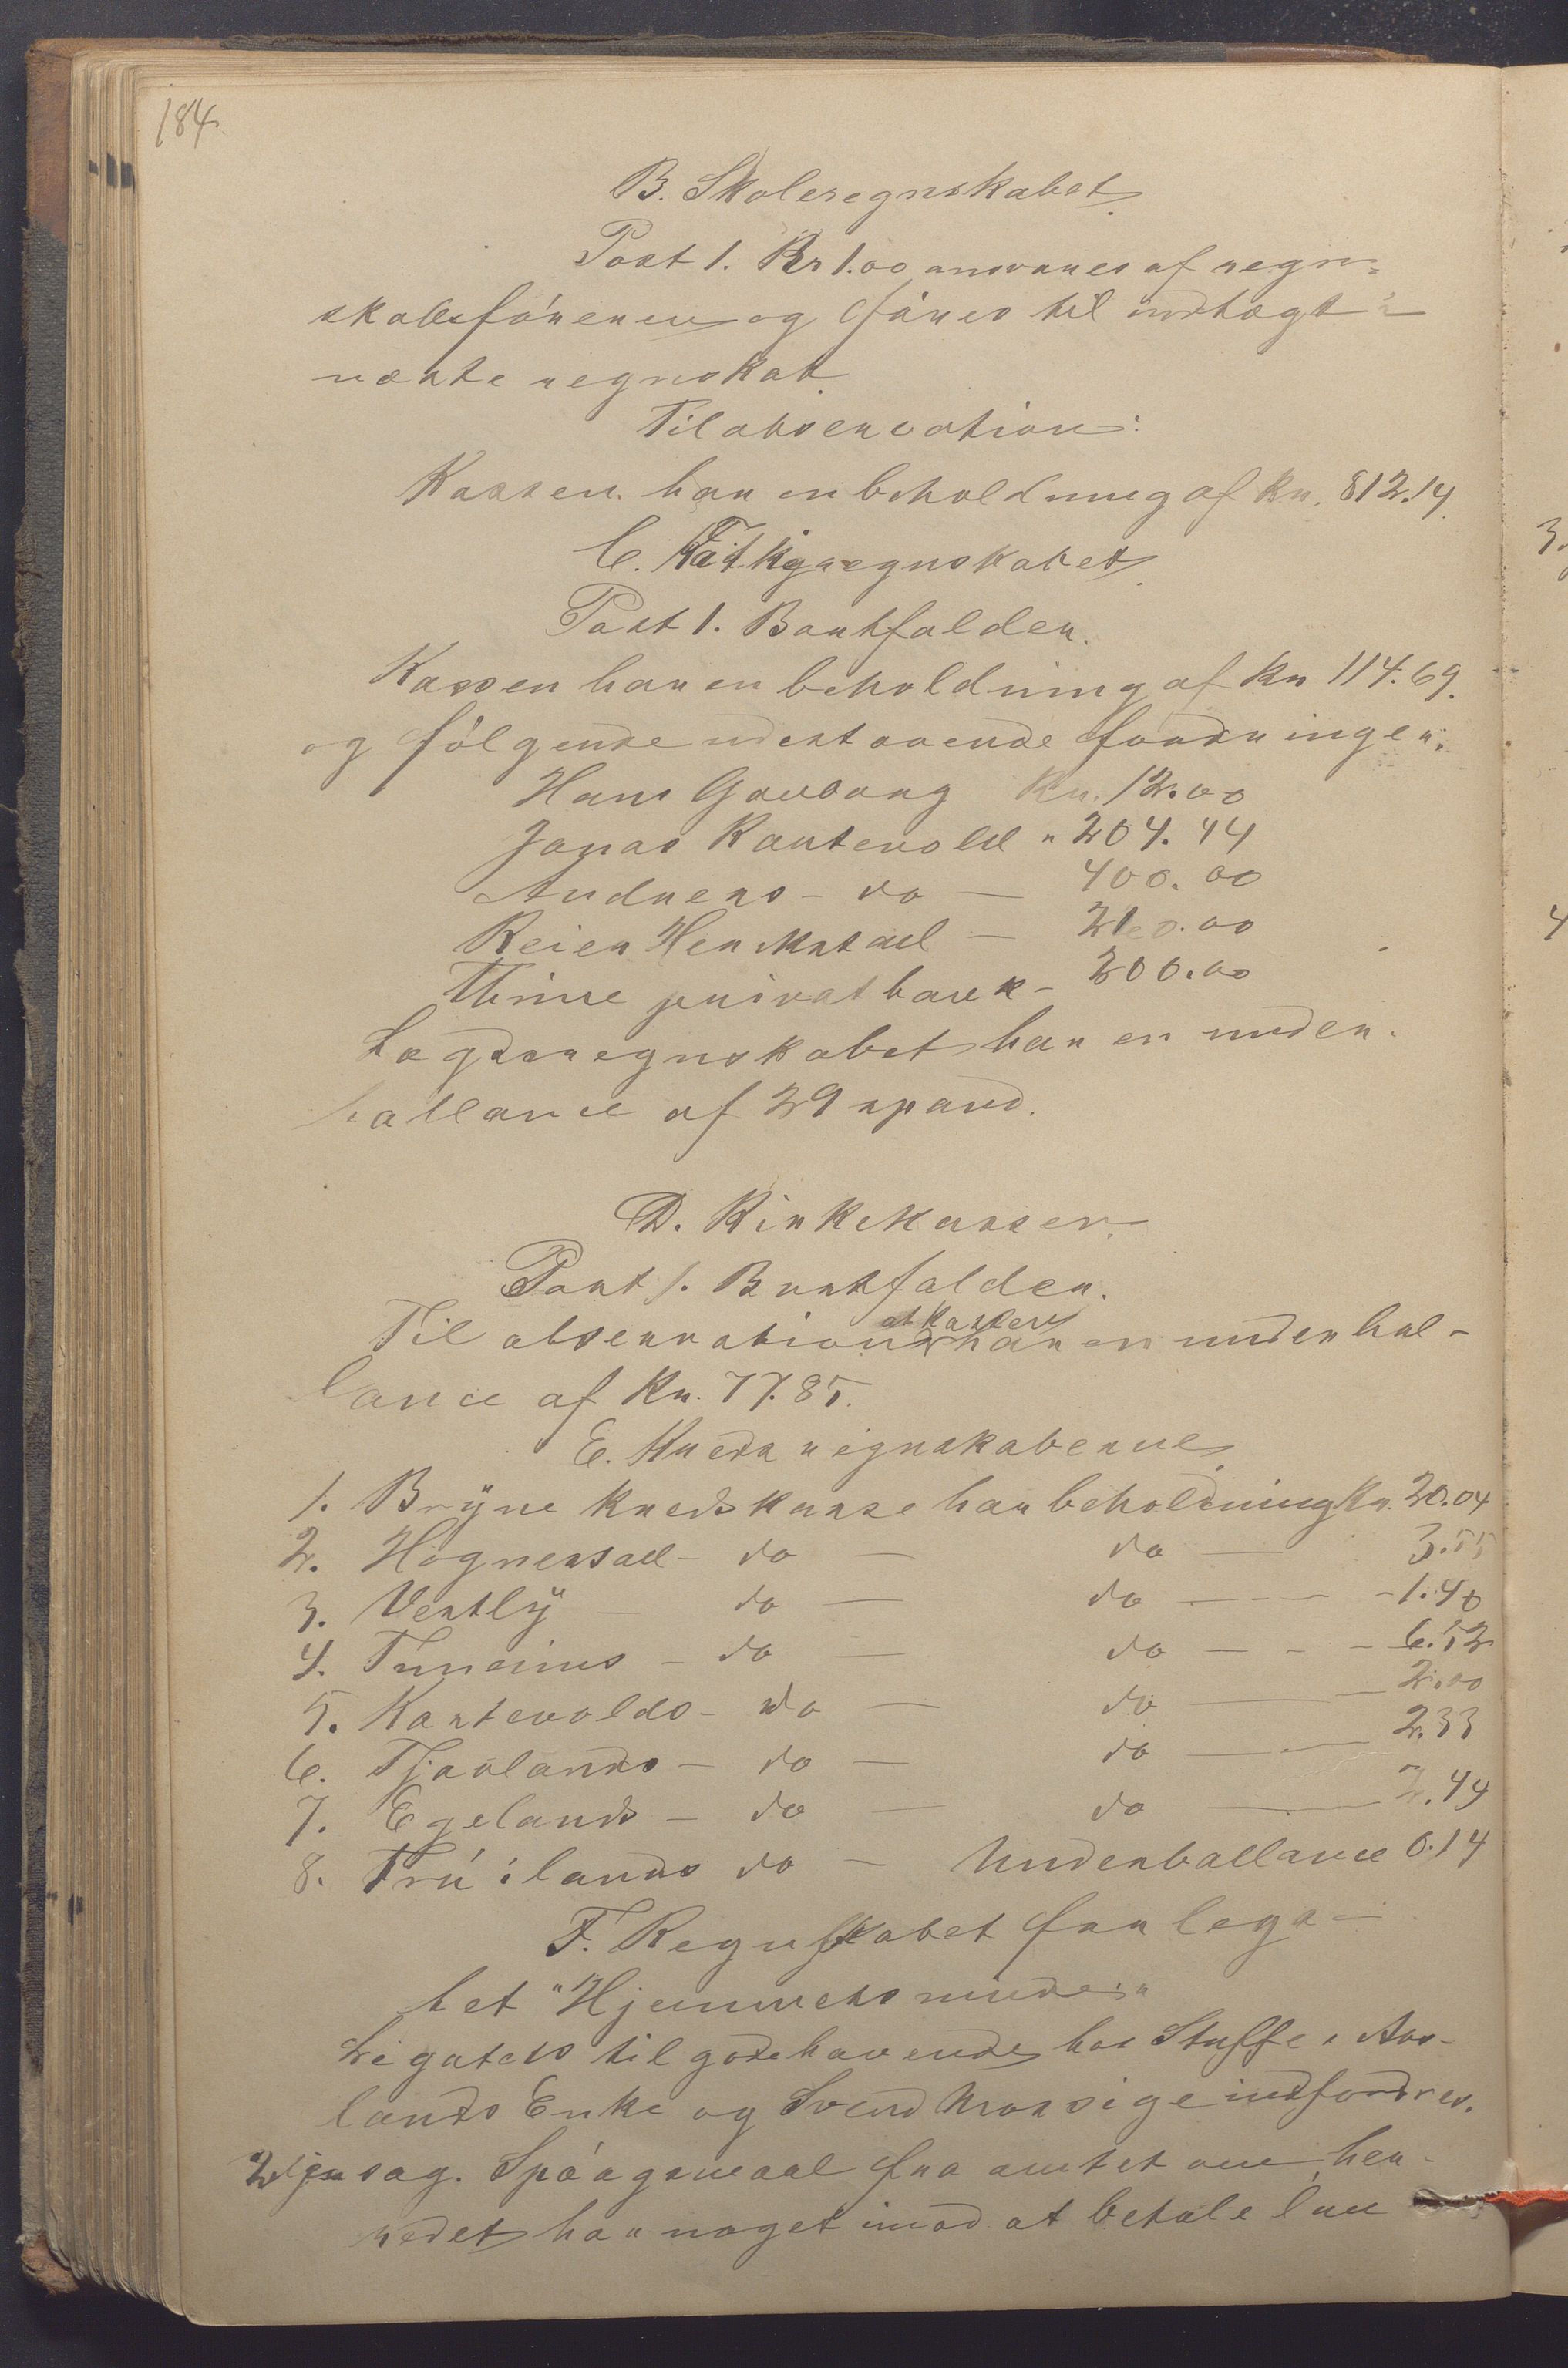 184.
B. Skoleregnskabet.
Post 1. Kr 1.00 ansvares af regn-
skabsføreren og føres til indtægt i
næste regnskab.
Til observation:
Kassen har en beholdning af Kr. 812.14
C. Fatigregnskabet.
Post 1. Bortfalder.
Kassen har en beholdning af Kr 114.69.
og følgende udestaaende fordringer:
Hans Gauvarg Kr. 12.00
Jonas Kartevold " 204.44
Andreas - do - 400.00
Reier Herikstad - 210.00
Thime privatbank - 200.00
Lægdsregnskabet har en under-
ballance af 29 spand.
D. Kirkekassen.
Post 1. Bortfalder.
Til observation at kassen har en underbal-
lance af Kr. 77.85.
E. Kredsregnskaberne.
1. Bryne kredskasse har beholdning Kr. 20.04
2. Høgnestad - do - do - 3.55
3. Vestly - do - do - 1.40
4. Tuneims - do - do - 6.52
5. Kartevolds - do - do - 2.00
6. Tjaalands - do - do - 2.33
7. Egelands - do - do - 2.44
8. Frøilands do - Underballance 0.14
F. Regnskabet for lega-
tet "Hjemmets minde"
Legatets tilgodehavende hos Staffe Aas-
lands Enke og Svend Mossige indfordres.
2den sag. Spørgsmaal fra amtet om her-
redet har noget imod at betale